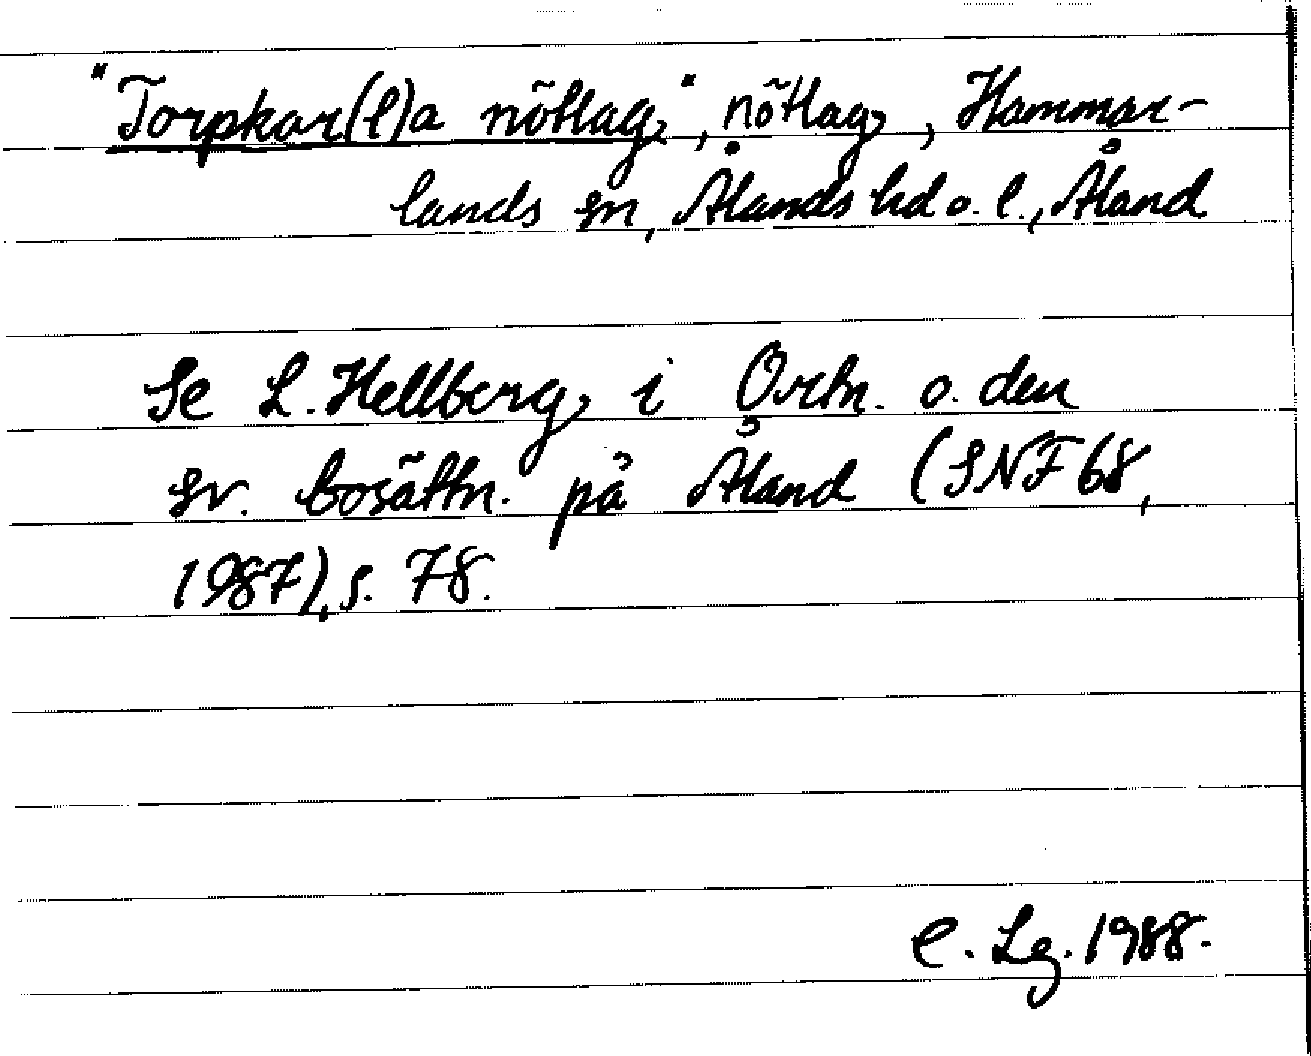 "Torpkar(l)a nötlag", nötlag, Hammar-
lands sn, Ålands hd o. l., Åland
Se L. Hellberg i Ortn. o. den
sv. bosättn. på Åland (SNF 68,
1987), s. 78.
C. Lg. 1988.